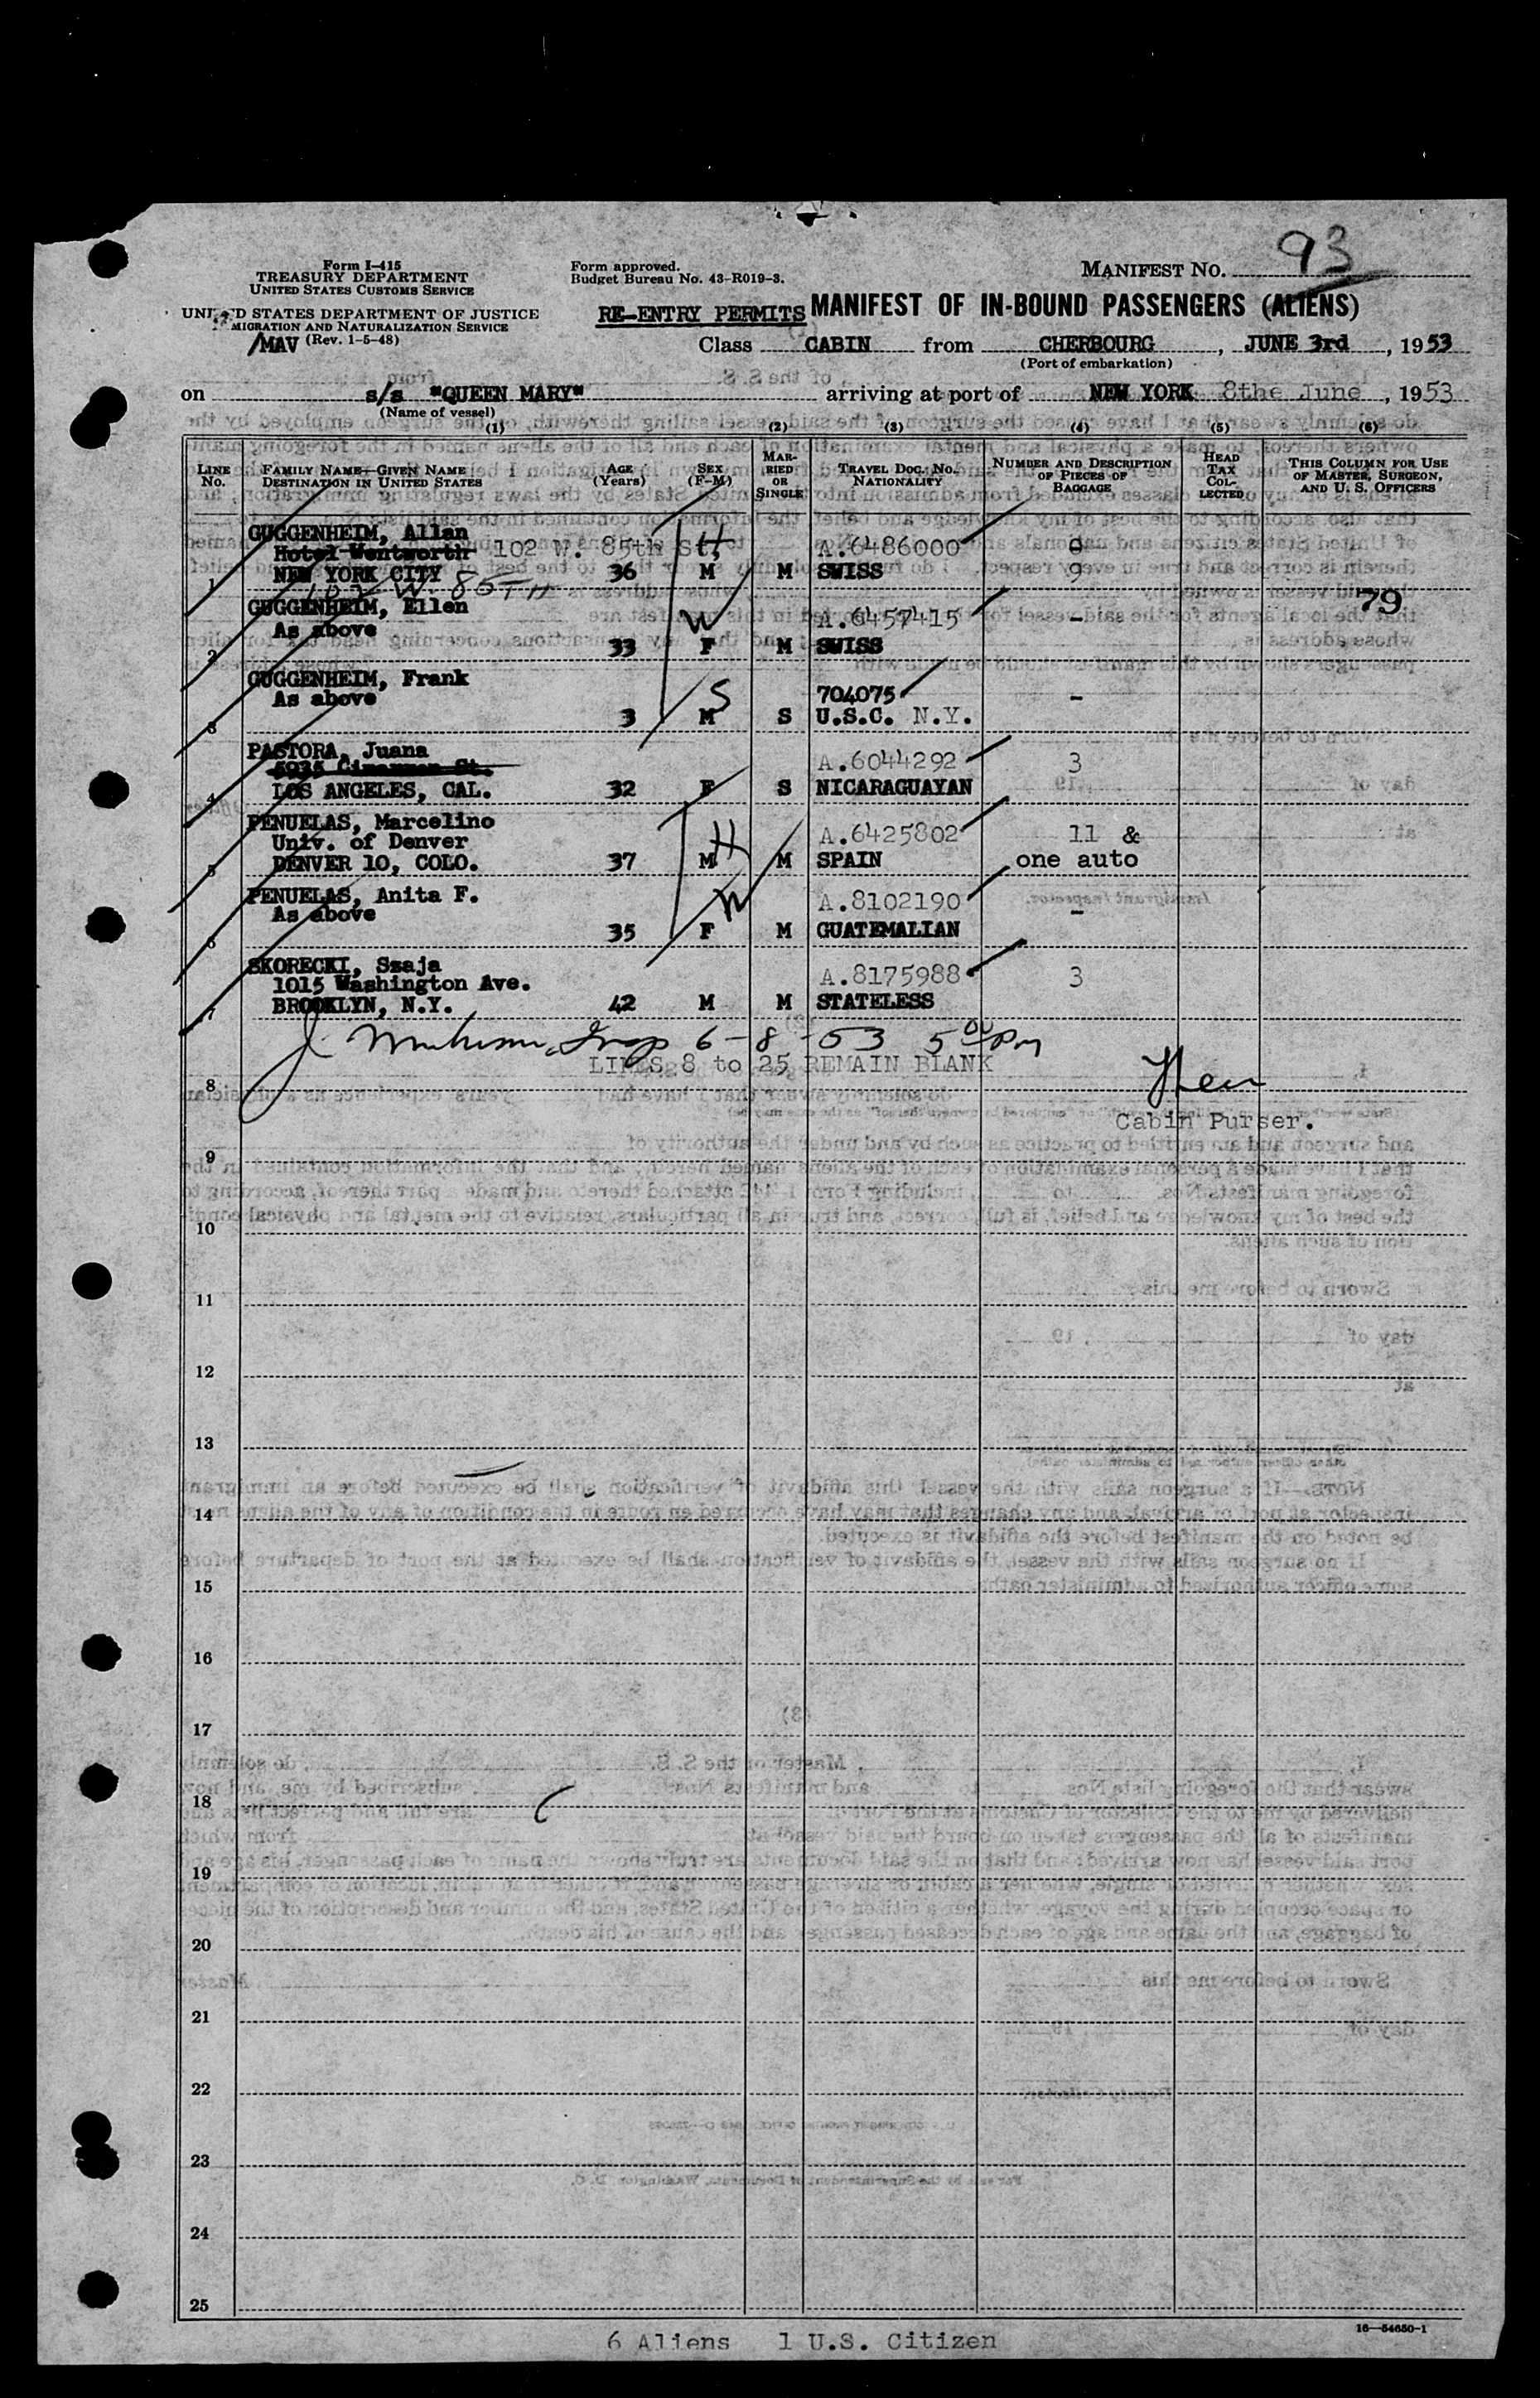 93
Form I-415
TREASURY DEPARTMENT
UNITED STATES CUSTOMS SERVICE
Form approved.
Budget Bureau No. 43-R019-3.
MANIFEST No.
UNITED STATES DEPARTMENT OF JUSTICE
IMMIGRATION AND NATURALIZATION SERVICE
(Rev. 1-5-48)
/MAV
RE-ENTRY PERMITS MANIFEST OF IN-BOUND PASSENGERS (ALIENS)
Class CABIN from CHERBOURG, JUNE 3rd, 1953
(Port of embarkation)
on s/s "QUEEN MARY" arriving at port of NEW YORK 8the June, 1953
(Name of vessel)
(1) (2) (3) (4) (5) (6)
LINE No. FAMILY NAME—GIVEN NAME DESTINATION IN UNITED STATES AGE (Years) SEX (F-M) MARRIED OR SINGLE TRAVEL DOC. NO. NATIONALITY NUMBER AND DESCRIPTION OF PIECES OF BAGGAGE HEAD TAX COLLECTED THIS COLUMN FOR USE OF MASTER, SURGEON, AND U. S. OFFICERS
GUGGENHEIM, Allan
Hotel Wentworth 102 W. 85th St, H A.6486000
1 NEW YORK CITY 36 M M SWISS 9
102 W. 85TH
79
GUGGENHEIM, Ellen W A.6457415 -
As above
2 33 F M SWISS
GUGGENHEIM, Frank
As above S 704075 -
3 3 M S U.S.C. N.Y.
PASTORA, Juana A.6044292 3
5935 St.
4 LOS ANGELES, CAL. 32 F S NICARAGUAYAN
PENUELAS, Marcelino
Univ. of Denver H A.6425802 11 &
5 DENVER 10, COLO. 37 M M SPAIN one auto
PENUELAS, Anita F. W A.8102190 -
As above
6 35 F M GUATEMALIAN
SKORECKI, Szaja
1015 Washington Ave. A.8175988 3
7 BROOKLYN, N.Y. 42 M M STATELESS
6-8-53 5 00 PM
LINES 8 to 25 REMAIN BLANK
8
Cabin Purser.
9
10
11
12
13
14
15
16
17
18
19
20
21
22
23
24
25
16—54650-1
6 Aliens 1 U.S. Citizen